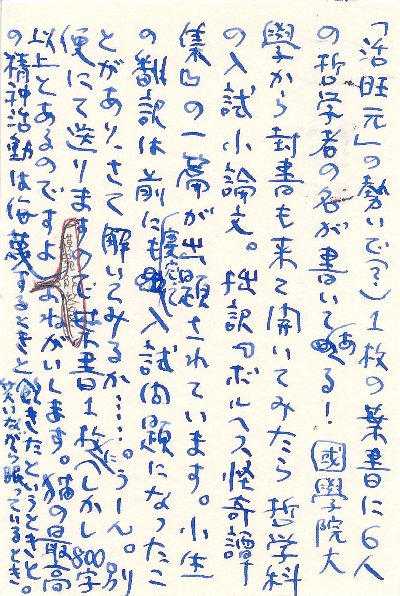 「活旺元」の勢いで(?)1枚の葉書に6人
の哲学者の名が書いてある! 國學院大
學から封書も来て開いてみたら哲学科
の入試小論文。拙訳『ボルヘス怪奇譚
集』の一篇が出題されています。小生
の翻訳は前にも慶応で入試問題になったこ
とがあり、さて解いてみるか……。うーん。別
便にて送りますので葉書1枚に(しかし800字
以上とあるのですよ)おねがいします。猫の最高
の精神活動は侮蔑するときと飽きたというときと、
笑いながら眠っているとき。